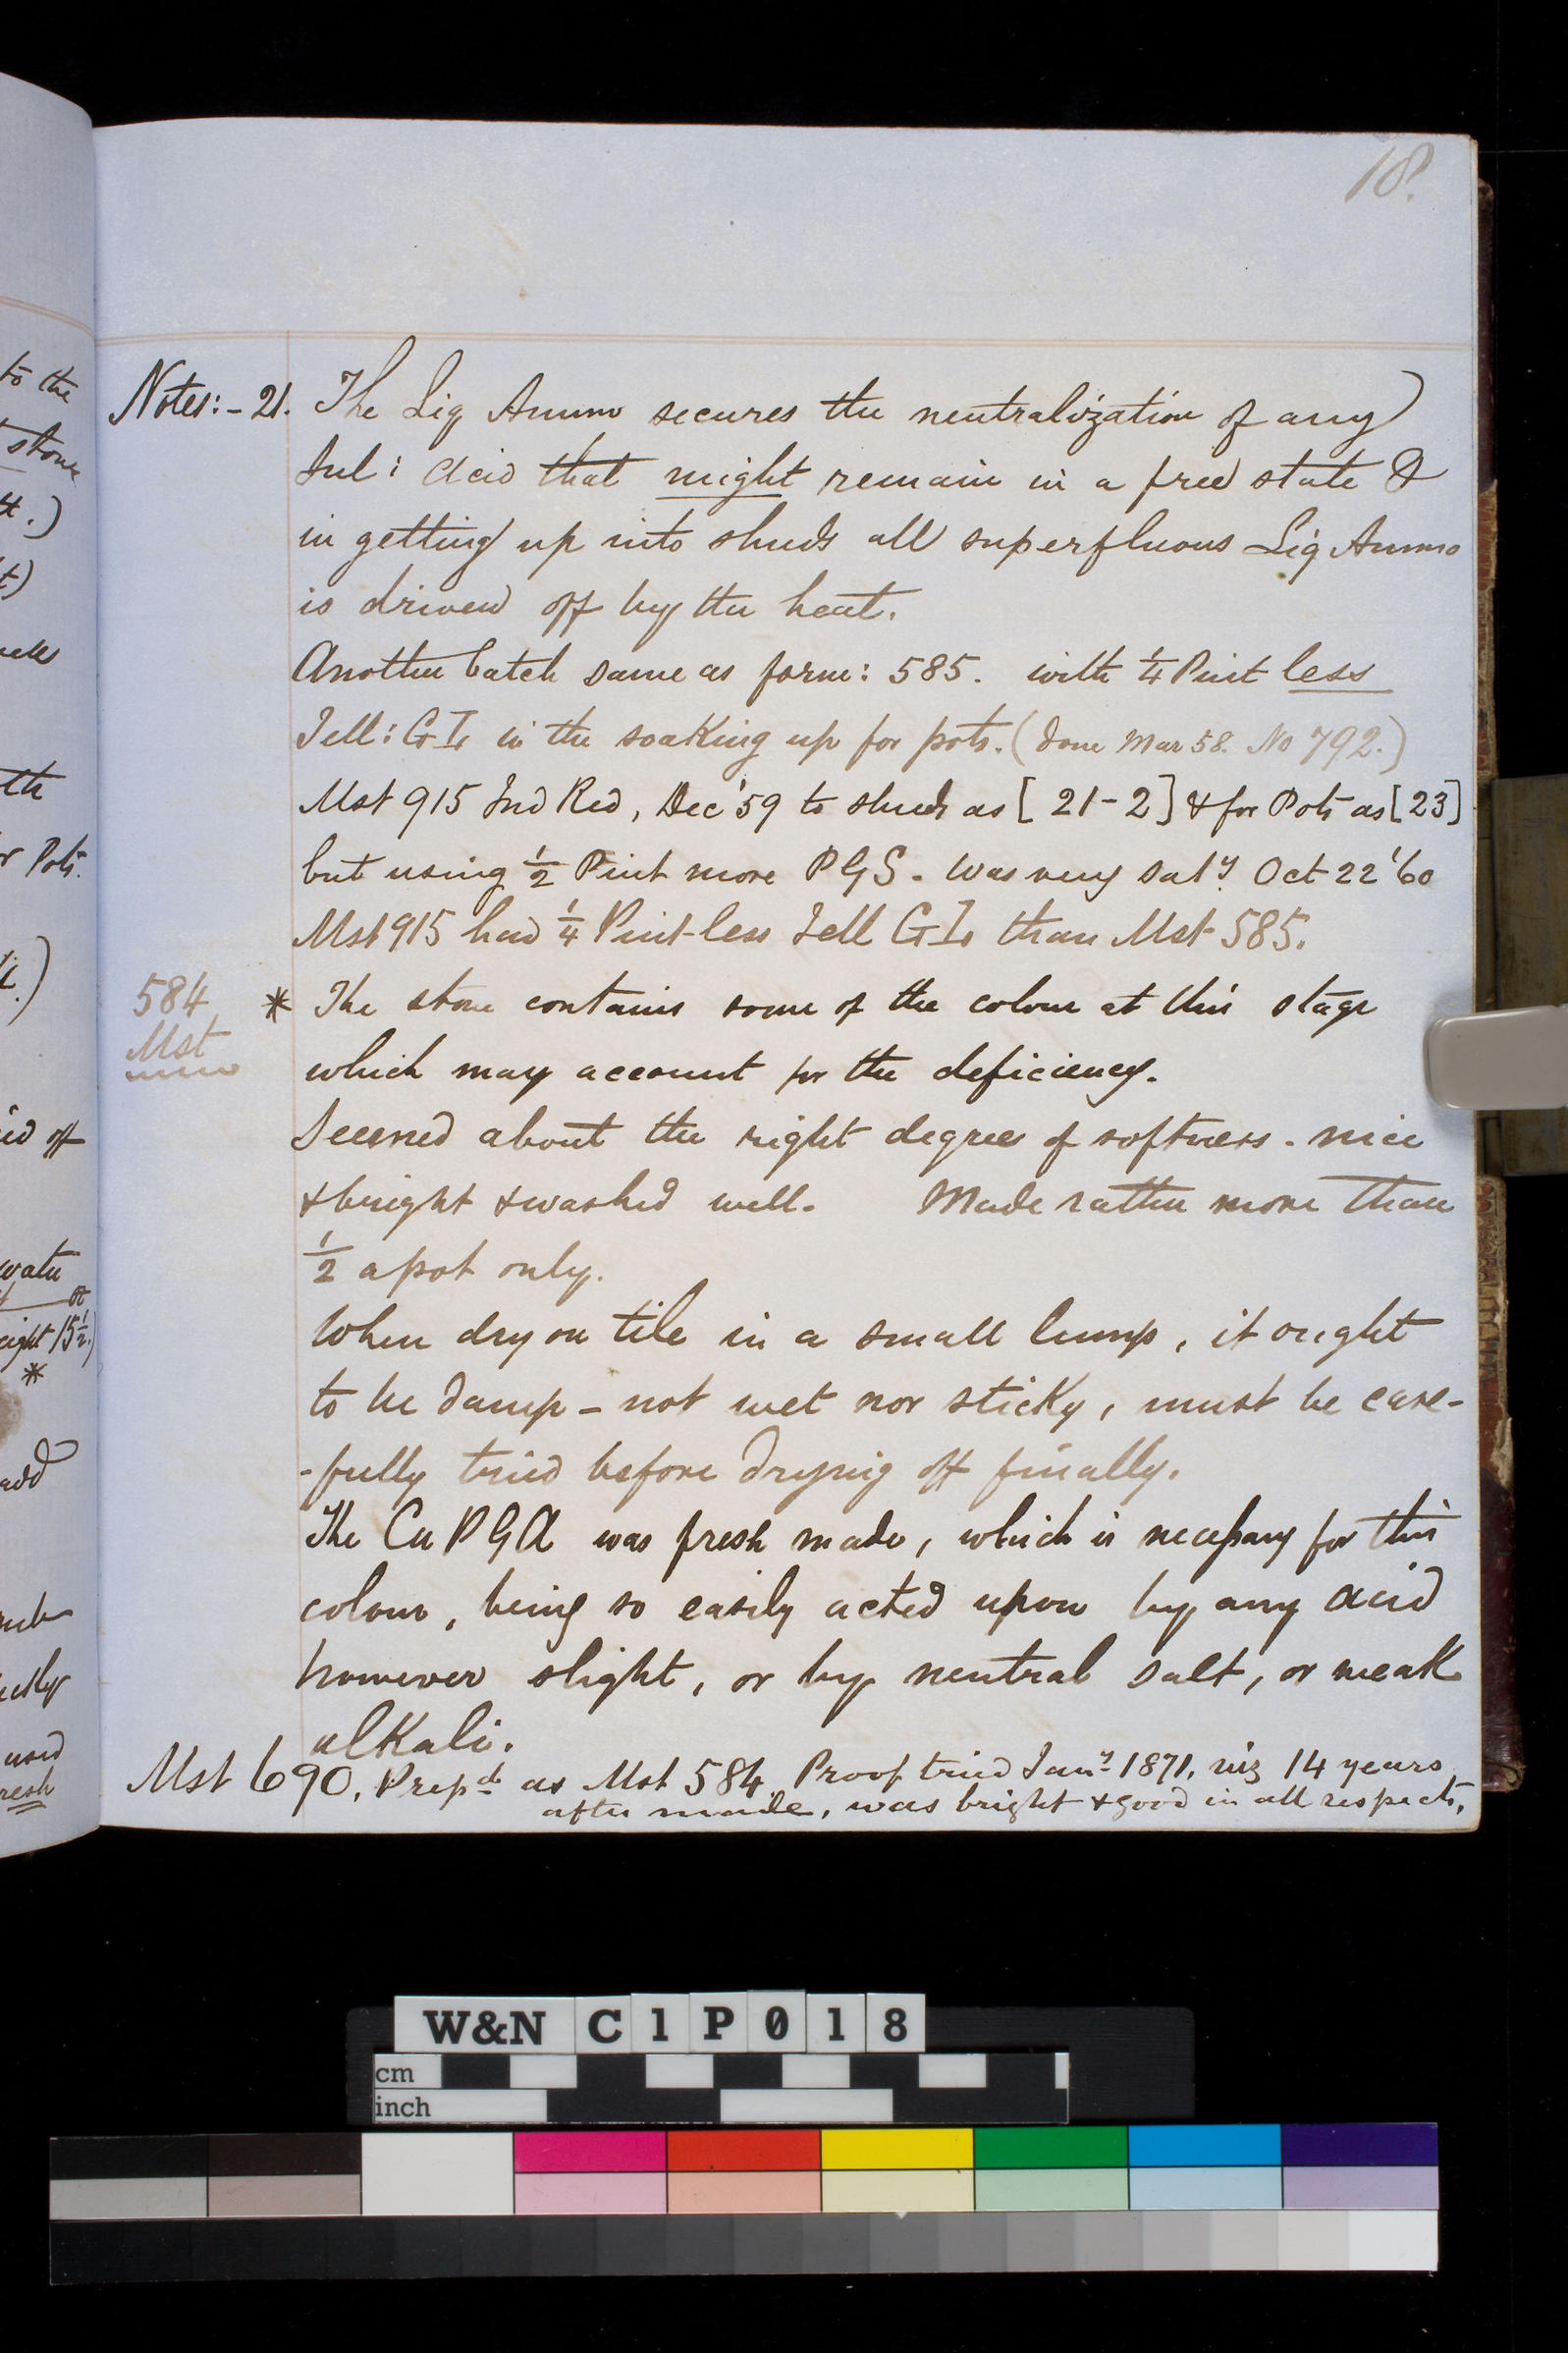 18.
Notes:- 21. The Liq Ammo secures the neutralization of any
Sul: Acid that might remain in a free state &
in getting up into shuds all superfluous Liq Ammo
is driven off by the heat.
Another batch same as form: 585. with 1/4 Pint less
Jell: GI in the soaking up for pots. (Done Mar 58. No 792.)
Mst 915 Ind Red, Dec '59 to shuds as [21-2] & for Pots as [23]
but using 1/2 Pint more PGS. Was very saty. Oct 22 '60
Mst 915 had 1/4 Pint less Jell GI than Mst 585.
584 * The stone contains some of the colour at this stage
Mst
which may account for the deficiency.
Seemed about the right degree of softness. nice
& bright & washed well. Made rather more than
1/2 a pot only.
When dry on tile in a small lump, it ought
to be damp - not wet nor sticky, must be care-
-fully tried before drying off finally.
The Cu PGA was fresh made, which is necessary for this
colour, being so easily acted upon by any acid
however slight, or by neutral salt, or weak
alkali.
Mst 690. Prepd as Mst 584. Proof tried Jany 1871. viz 14 years
after made, was bright & good in all respects.
to the
stone
tt.)
t.)
th
r Pots.
)
id off
water
eight 15 1/2)
*
add
used
resh
W&N C1P018
cm
inch